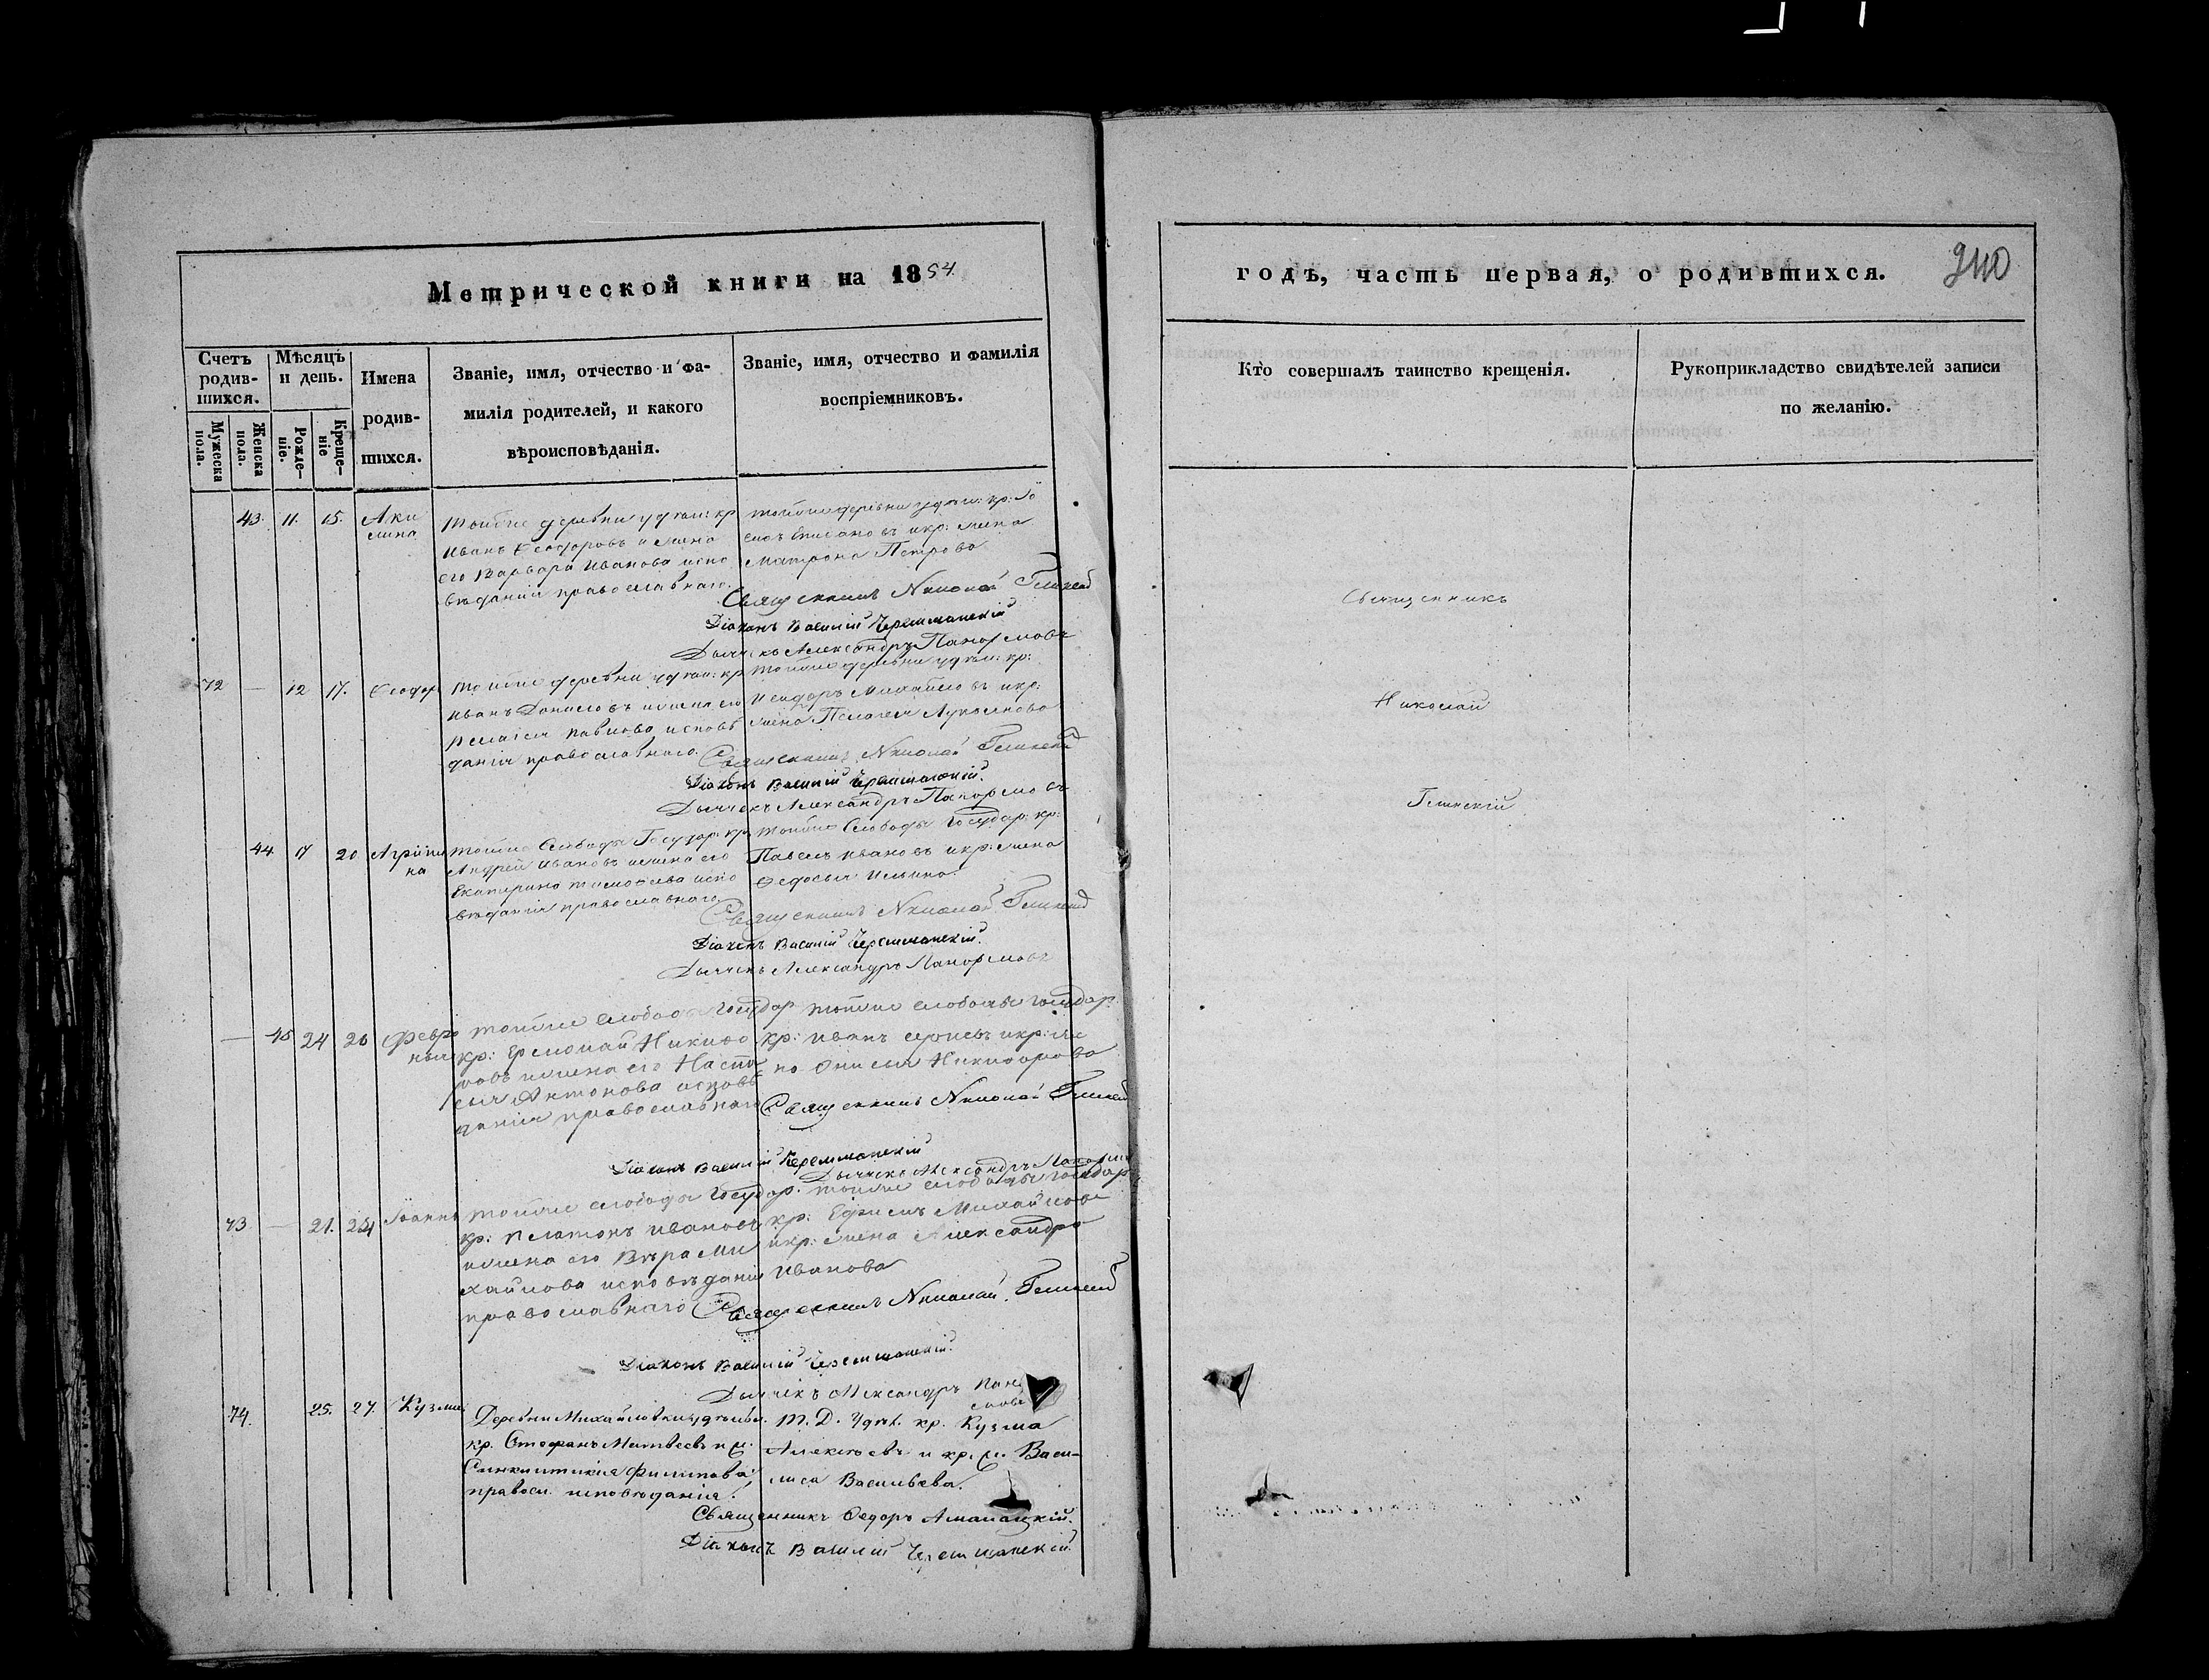 Метрической книги на 1854
годъ, часть первая, о родившихся.
240
Счетъ родив-
шихся.
Мѣсяцъ
и день.
Имена
родив-
шихся.
Мужеска
пола.
Женска
пола.
Рожде-
ніе.
Креще-
ніе
Званіе, имя, отчество и фа-
милія родителей, и какого
вѣроисповѣданія.
Званіе, имя, отчество и фамилія
воспріемниковъ.
Кто совершалъ таинство крещенія.
Рукоприкладство свидѣтелей записи
по желанію.
43. 11. 15. Аки
лина
Тойже деревни удѣл: кр
Иванъ Ѳеодоровъ и жена
его Варвара Иванова испо
вѣданія православнаго.
тойже деревни удѣл: кр:
Степановъ и кр: жена
Матрона Петрова
Священникъ Николай Глинскій
Діаконъ Василій Черемшанскій
Дьячекъ Александръ Панормовъ
72 — 12 17. Ѳеодор
Тойже деревни удѣл: кр
Иванъ Даниловъ и жена его
Пелагея Павлова исповѣ
данія православнаго.
тойже деревни удѣл: кр:
Исидоръ Михайловъ и кр:
жена Пелагея Лукьянова
Священникъ Николай Глинскій
Діаконъ Василій Черемшанскій.
Дьячекъ Александръ Панормовъ
44 17 20 Агрипи
на
тойже Слободы Государ: кр
Андрей Ивановъ и жена его
Екатерина Тимофеева испо
вѣданія православнаго
тойже Слободы Государ: кр:
Павелъ Ивановъ и кр: жена
Ѳедосья Ильина.
Священникъ Николай Глинскій
Діаконъ Василій Черемшанскій.
Дьячекъ Александръ Панормовъ
— 45 24 26 Февро
нья
тойже слободы Государ
кр: Ермолай Никифо
ровъ и жена его Наста
сья Антонова исповѣ
данія православнаго
тойже слободы Государ.
кр: Иванъ и кр: же
на Онисья Никифорова
Священникъ Николай Глинскій
Діаконъ Василій Черемшанскій
Дьячекъ Александръ Панормо
73 — 21. 24 Іоаннъ
тойже слободы Государ.
кр: Платонъ Ивановъ
и жена его Вѣра Ми
хайлова исповѣданія
православнаго
тойже слободы Государ
кр: Ефимъ Михайловъ
и кр: жена Александра
Иванова
Священникъ Николай Глинскій
Діаконъ Василій Черемшанскій.
Дьячекъ Александръ Пано
мовъ
74. 25. 27. Кузма
Деревни Михайловки удѣльн.
кр. Стефанъ Матвеевъ и ж.
Синклитикія Филипова
правосл. исповѣданія.
Т. Д. Удѣл. кр. Кузма
Алексѣевъ и кр. ж. Васи-
лиса Васильева.
Священникъ Ѳедоръ Алмалацкій.
Діаконъ Василій Черемшанскій.
Священникъ
Николай
Глинскій